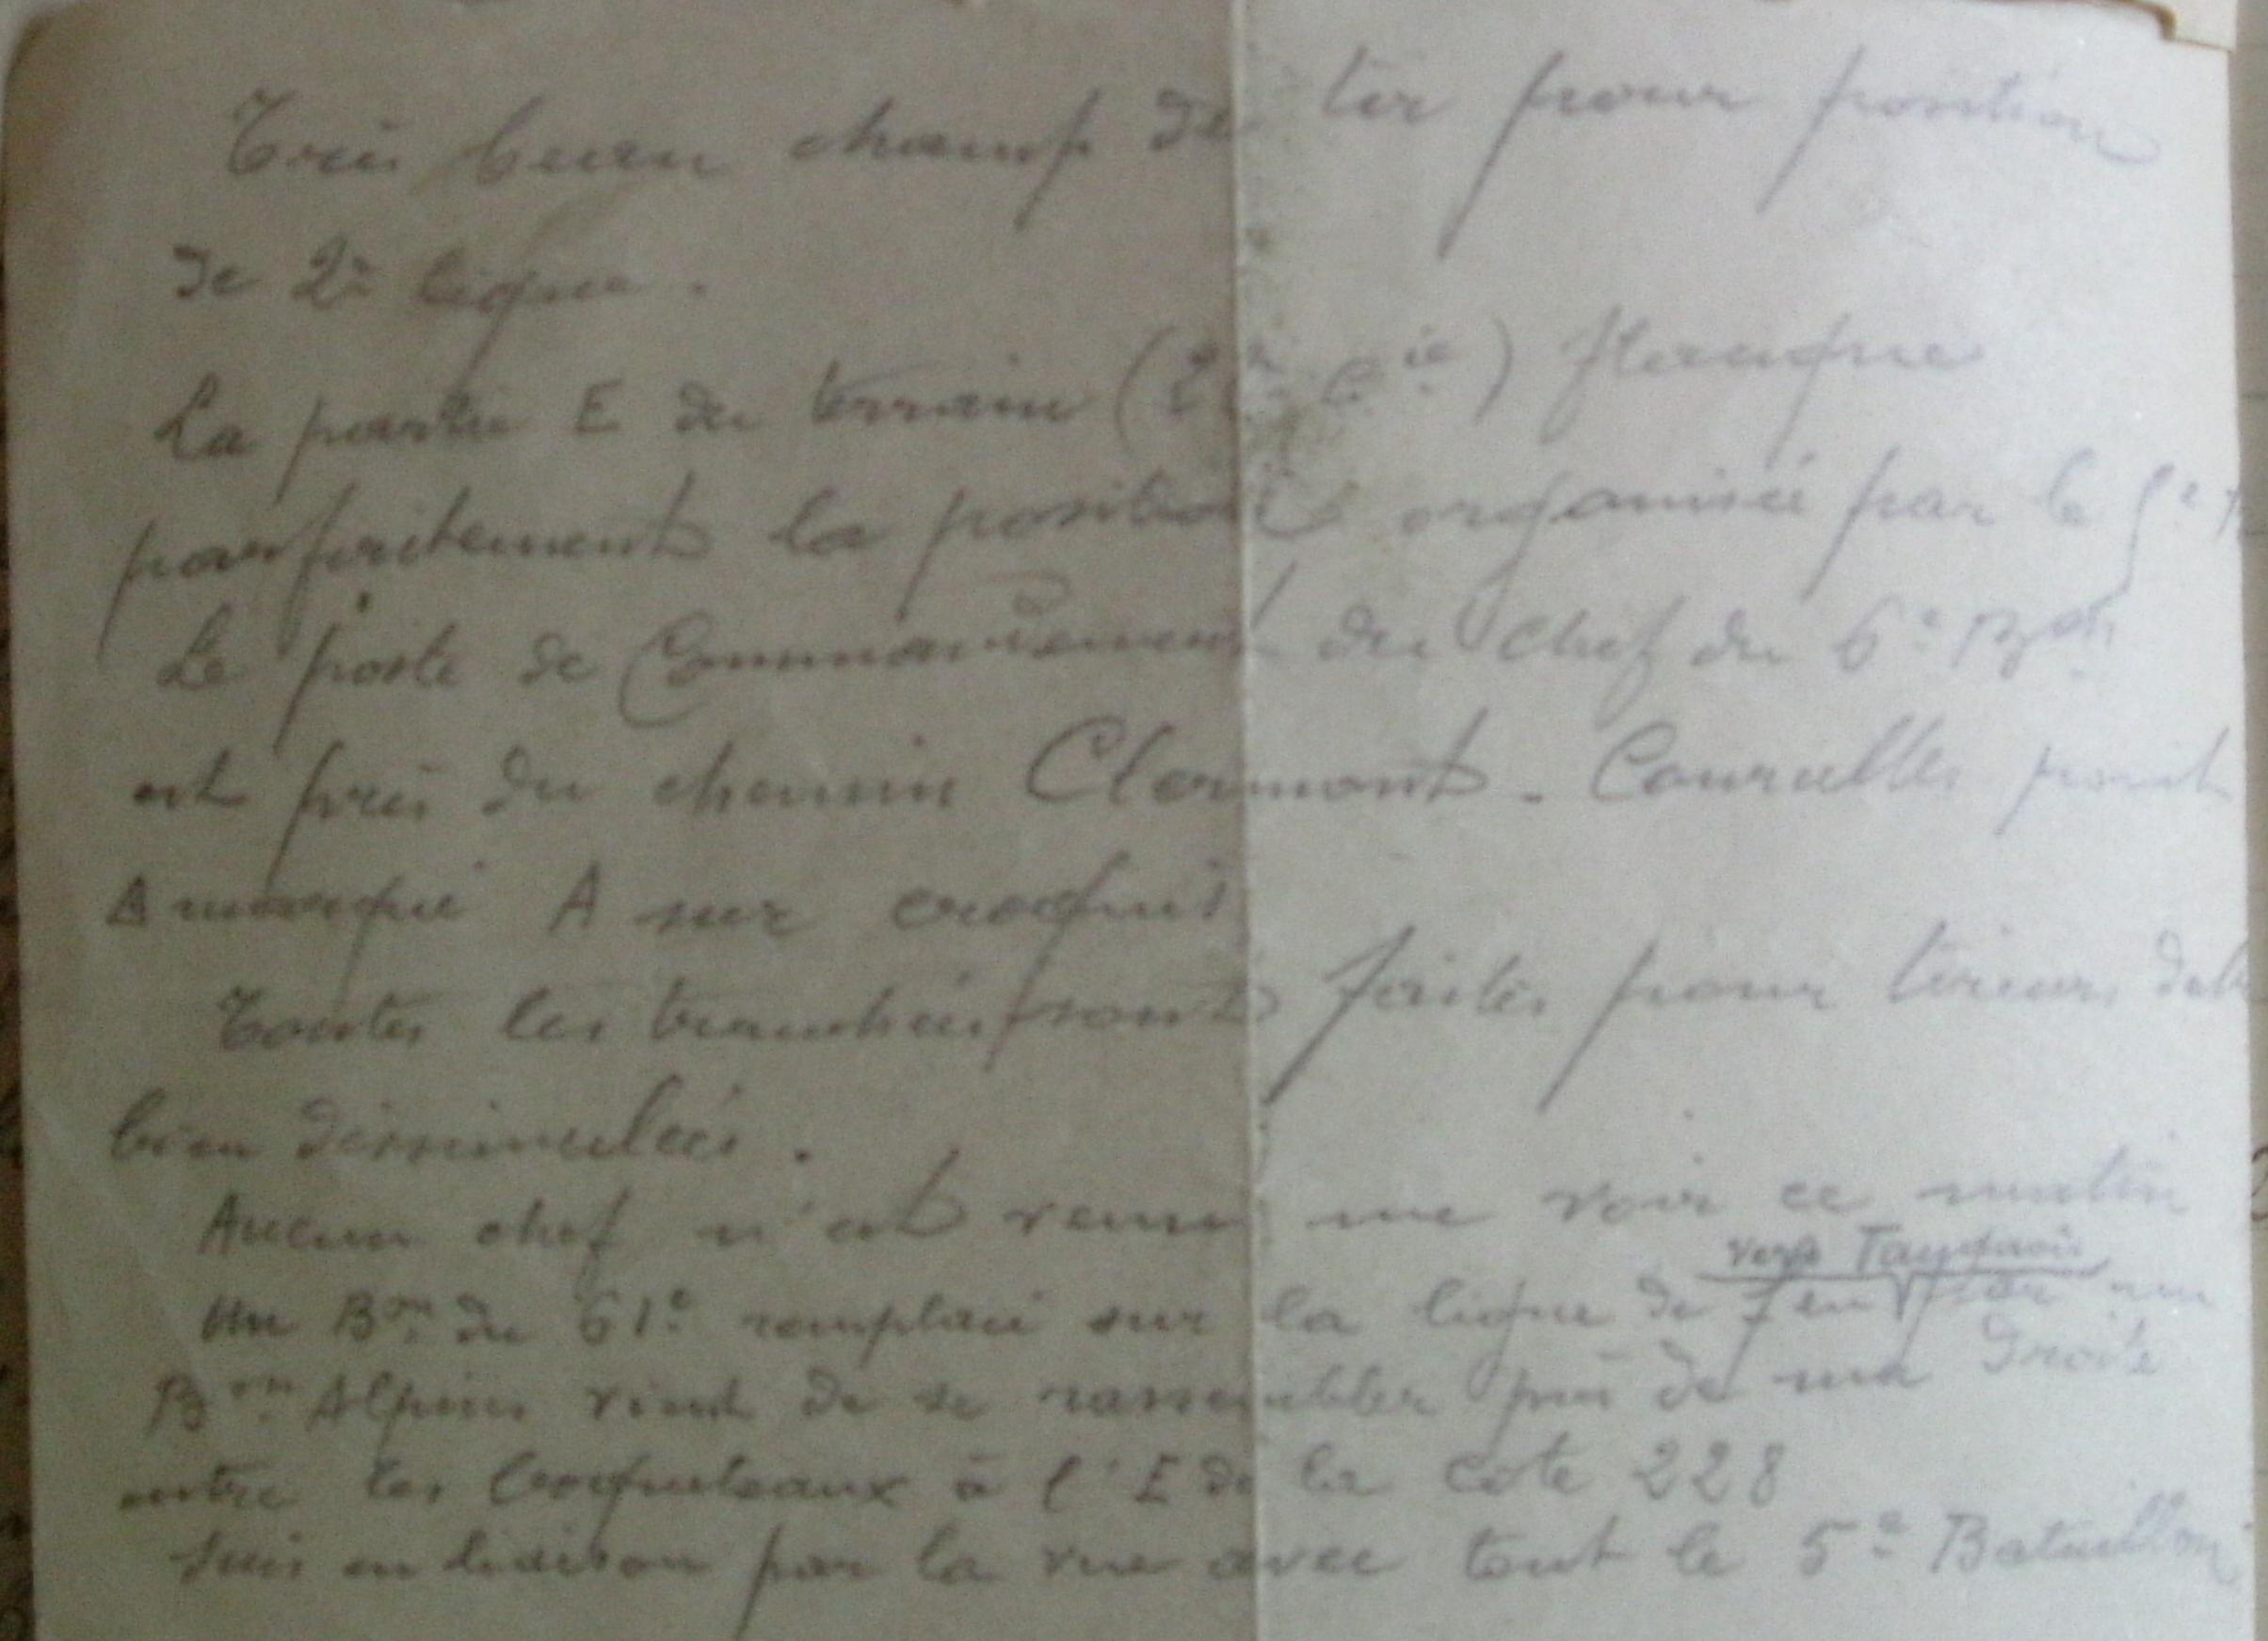 Très beau champ de tir pour position
de 2e ligne.
La partie E du terrain ( Cie) flanque
parfaitement la position organisée par le
Le poste de Commandement du Chef du 6e Bon
est près du chemin Clermont - Courcelles point
marqué A sur croquis
Toutes les tranchées sont faites pour tireurs
bien dissimulées.
Aucun chef n'est venu me voir ce matin
vers
Un Bon du 61e remplacé sur la ligne de feu par un
Bon Alpins vient de se rassembler près de ma droite
entre les boqueteaux à l'E de la cote 228
Suis en liaison par la vue avec tout le 5e Bataillon